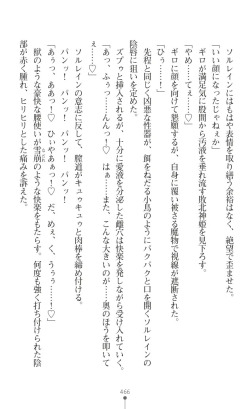 ソルレインにはもはや表情を取り繕う余裕はなく、絶望で歪ませた。
「いい顔になったじゃねぇか」
ギロが満足気に股間から汚液を垂れ流す敗北神姫を見下ろす。
「やめ……てぇ……♡」
ギロに顔を向けて懇願するが、自身に覆い被さる魔物で視線が遮られた。
「ひぅ……！」
先程と同じく凶悪な性器が、餌をねだる小鳥のようにパクパクと口を開くソルレインの
陰唇に狙いを定めた。
ズプゥと挿入されるが、十分に愛液を分泌した雌穴は快楽を生しながら受け入れていく。
「あっ、ふぅっ……んんっ！♡　はぁ……また、こんな大きいのが……奥のほうを叩いて
ぇ……♡」
ソルレインの意志に反して、膣道がキュゥキュゥと肉棒を締め付ける。
パンッ！　パンッ！　パンッ！
「あぅっ、あああっ！♡　ひぃやああっ！♡　だ、めぇ、く、うぅぅ……！♡」
獣のような豪快な腰使いが雪崩のような快楽をもたらす。何度も強く打ち付けられた陰
部が赤く腫れ、ヒリヒリとした痛みを訴えた。
466